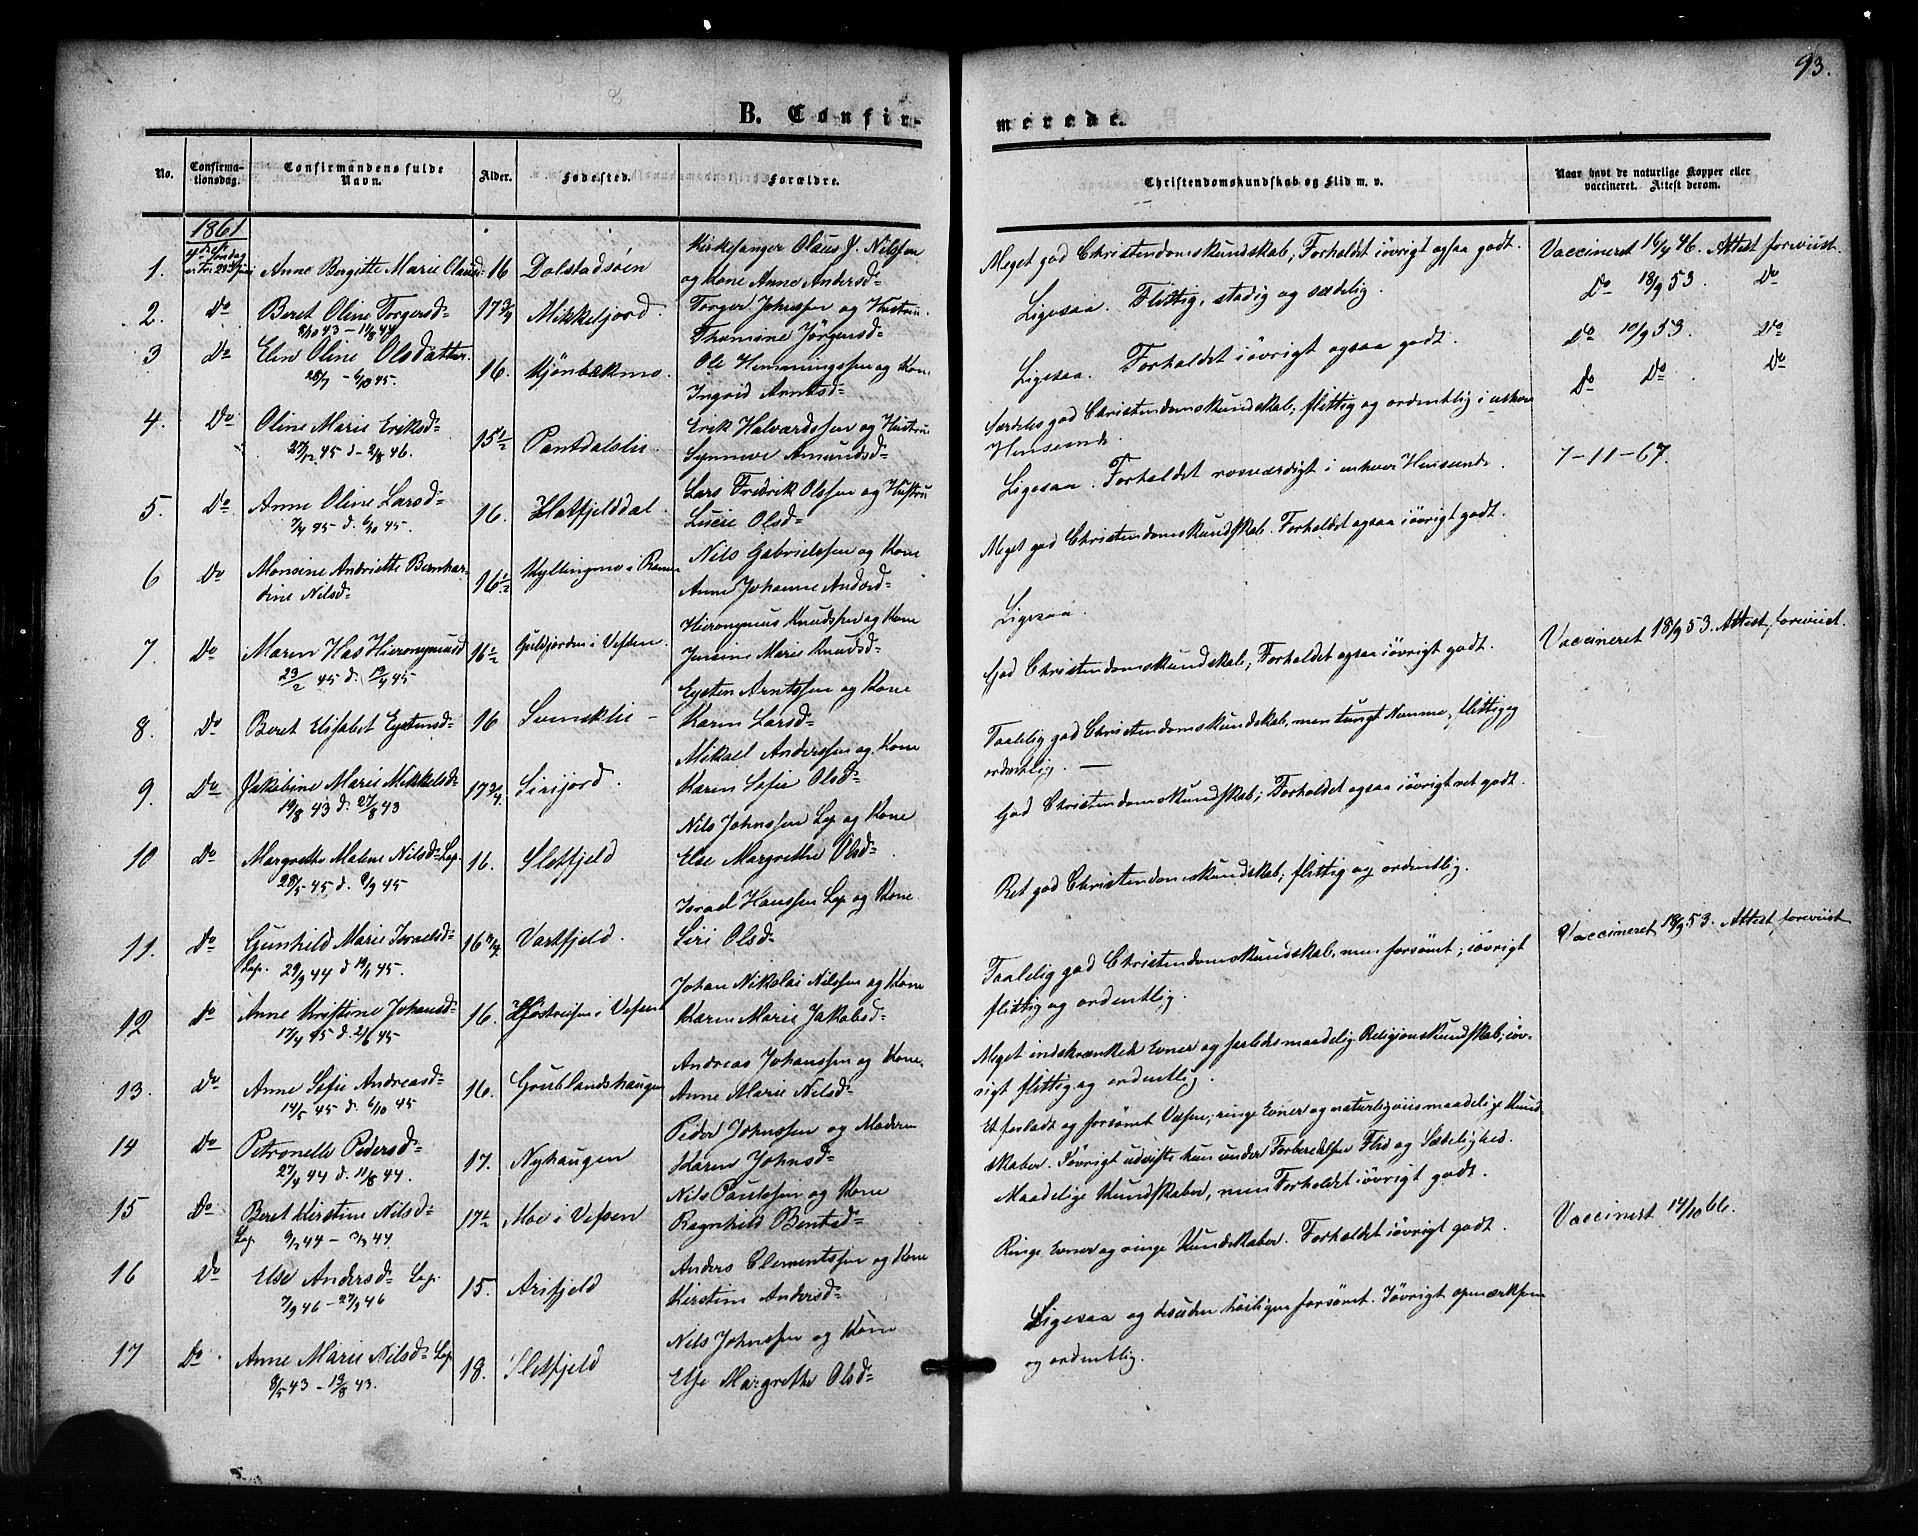 93.
B. Confirmerede.
No.
Confirmationsdag.
Confirmandens fulde Navn.
Alder.
Fødested.
Forældre.
Christendomskundskab og Flid m. v.
Naar havt de naturlige Kopper eller vaccineret. Attest derom.
1861
1. Anne Bergitte Marie Olausd 16 Dolstadsøen Kirkesanger Olaus J. Nilssen
og Kone Anne Andersd=
Meget god Christendomskundskab, Forholdet iøvrigt ogsaa godt. Vaccineret 16/7 46. Attest foreviist.
2. Do Beret Oline Torgersd= 17 3/4 Mikkeljord. Torger Johnssen og Hustru
8/10 43 – 11/8 44 Thomine Jørgersd=
Ligesaa. Flittig, stadig og sædelig. Do 18/9 53. Do
3 Do Elen Oline Olsdatter 16. Kjønbækmo. Ole Hemmingssen og Kone
28/7 – 6/10 45. Ingrid Arntsd=
Ligesaa. Forholdet iøvrigt ogsaa godt. Do 10/9 53. Do
4. Do Oline Marie Eriksd= 15 1/2 Pantdalslie. Erik Halvardssen og Hustru
27/12 45 d– 2/8 46. Synneve Amundsd=
Særdeles god Christendomskundskab, flittig og ordentlig i enhver
Henseende. Do Do. Do
5. Do Anne Oline Larsd= 16. Hatfjelddal. Lars Fredrik Olssen og Hustru
7/4 45 d. 6/10 45. Lucie Olsd=
Ligesaa. Forholdet rosværdigt i enhver Henseende. 7–11–67.
6 Do Monsine Andriette Bernhar- 16 1/2 Kyllingmo i Ranen Nils Gabrielssen og Kone
dine Nilsd= Anne Johanne Andersd=
Meget god Christendomskundskab. Forholdet ogsaa iøvrigt godt.
7. Do Maren Has Hieronymusd 16 1/2 i Vefsen. Hieronymus Knudssen og Kone
23/2 45 d. 13/4 45 Jensine Marie Knudsd=
Ligesaa. Vaccineret 18/9 53. Attest foreviist.
8. Do Beret Elisabet Eystensd= 16 Svensklie – Eysten Arntssen og Kone
Karen Larsd=
God Christendomskundskab, Forholdet ogsaa iøvrigt godt.
9. Do Jakobine Marie Mikkelsd= 17 3/4. Sirijord. Mikael Anderssen og Kone
19/8 43 d. 27/8 43 Karen Sofie Olsd=
Taalelig god Christendomskundskab, men tungt Nemme, flittig og
ordentlig. –
10 Do Margrethe Malene Nilsd= Lap. 16. Sletfjeld Nils Johnssen Lap og Kone
28/5 45 d. 9/9 45 Else Margrethe Olsd=
God Christendomskundskab; Forholdet ogsaa iøvrigt ret godt.
11. Do Gunhild Marie Israelsd= 16 3/4. Vartfjeld. Israel Hanssen Lap og Kone
Lap. 29/9 44 d 19/1 45. Siri Olsd=
Ret god Christendomskundskab; flittig og ordentlig. Vaccineret 18/9 53. Attest foreviist
12 Do Anne Kristine Johansd= 16. i Vefsen Johan Nikolai Nilssen og Kone
17/4 45 d. 21/6 45 Karen Marie Jakobsd=
Taalelig god Christendomskundskab, men forsømt; iøvrigt
flittig og ordentlig.
13. Do Anne Sofie Andreasd= 16. Grublandshaugen Andreas Johanssen og Kone
14/5 45 d. 6/10 45 Anne Marie Nilsd=
Meget indskrænkede Evner og saaledes maadelig Religionskundskab; iøv-
rigt flittig og ordentlig.
14 Do Petronelle Pedersd= 17. Nyhaugen Peder Johnssen og Moderen
27/4 44 d. 11/8 44. Karen Johnsd=
Et forladt og forsømt Væsen, ringe Evner og naturligviis maadelige Kund-
skaber. Iøvrigt udviste hun under Forberedelsen Flid og Sædelighed.
15 Do Beret Kirstine Nilsd= 17 1/2 Moe i Vefsen Nils Paulssen og Kone
Lap 9/2 44 – 44. Ragnhild Bentsd=
Maadelige Kundskaber, men Forholdet iøvrigt godt. Vaccineret 14/10 66.
16 Do Else Andersd= Lap. 15. Arifjeld Anders Clementssen og Kone
7/9 46 – 27/9 46 Kirstine Andersd=
Ringe Evner og ringe Kundskaber. Forholdet iøvrigt godt.
17 Do Anne Marie Nilsd= Lap 18. Sletfjeld Nils Johnssen og Kone
8/5 43 – 13/8 43. Else Margrethe Olsd=
Ligesaa og desuden forsømt. Iøvrigt opmærksom
og ordentlig.